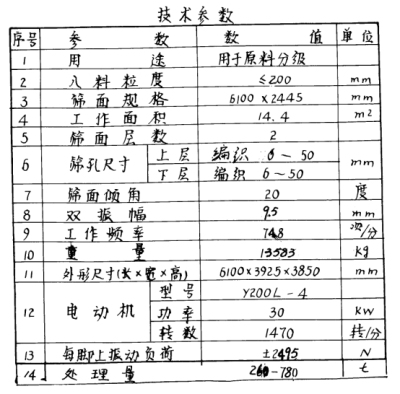 技术参数
序号 参数 数值 单位
1 用途 用于原料分级
2 入料粒度 ≤200 mm
3 筛面规格 6100×2445 mm
4 工作面积 14.4 m²
5 筛面层数 2
6 筛孔尺寸 上层 编识 6~50 mm
下层 编织 6~50
7 筛面倾角 20 度
8 双振幅 9.5 mm
9 工作频率 748 次/分
10 重量 13583 kg
11 外形尺寸(长×宽×高) 6100×3925×3850 mm
12 电动机 型号 Y200L-4
功率 30 KW
转数 1470 转/分
13 每脚上振动负荷 ±2495 N
14 处理量 260-780 t